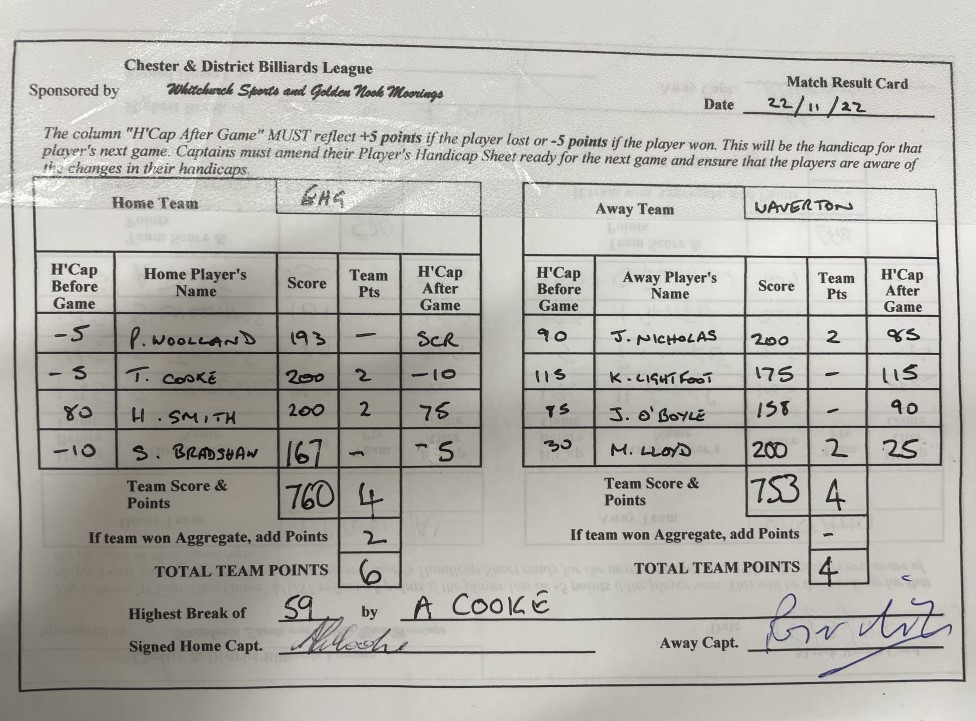 Chester & District Billiards League
Match Result Card
Sponsored by Whitchurch Sports and Golden Nook Moorings
Date 22/11/22
The column "H'Cap After Game" MUST reflect +5 points if the player lost or -5 points if the player won. This will be the handicap for that
player's next game. Captains must amend their Player's Handicap Sheet ready for the next game and ensure that the players are aware of
the changes in their handicaps.
Home Team GHG
H'Cap Before Game Home Player's Name Score Team Pts H'Cap After Game
-5 P. WOOLLAND 193 - SCR
-5 T. COOKE 200 2 -10
80 H. SMITH 200 2 75
-10 S. BRADSHAW 167 - -5
Team Score & Points 760 4
If team won Aggregate, add Points 2
TOTAL TEAM POINTS 6
Away Team WAVERTON
H'Cap Before Game Away Player's Name Score Team Pts H'Cap After Game
90 J. NICHOLAS 200 2 85
115 K. LIGHTFOOT 175 - 115
85 J. O'BOYLE 158 - 90
30 M. LLOYD 200 2 25
Team Score & Points 753 4
If team won Aggregate, add Points -
TOTAL TEAM POINTS 4
Highest Break of 59 by A COOKE
Signed Home Capt.
Away Capt.